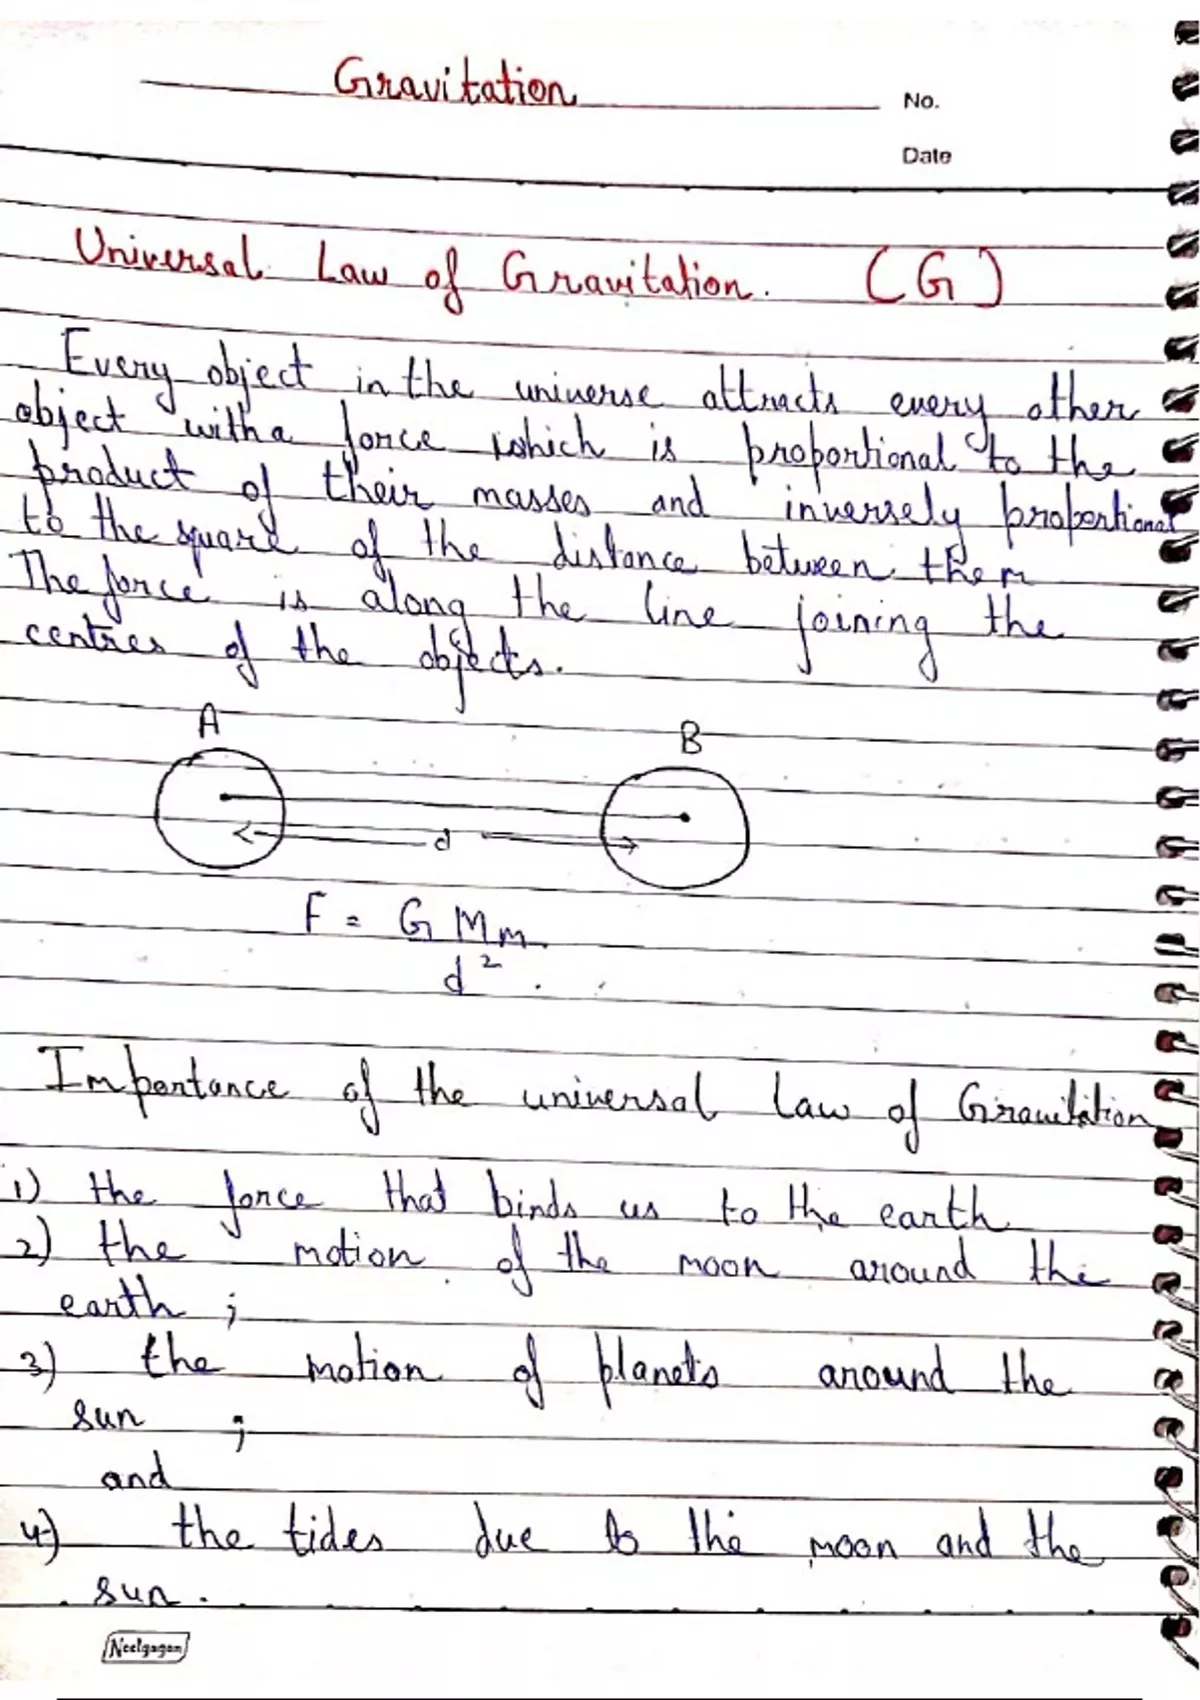 Gravitation
No.
Date
Universal Law of Gravitation. (G)
Every object in the universe attracts every other
object with a force which is proportional to the
product of their masses and inversely proportional
to the square of the distance between them
The force is along the line joining the
centres of the objects.
A
B
d
F = G Mm
d²
Importance of the universal law of Gravitation
1) the force that binds us to the earth
2) the motion of the moon around the
earth ;
3) the motion of planets around the
sun ;
and
4) the tides due to the moon and the
sun.
Neelgagan